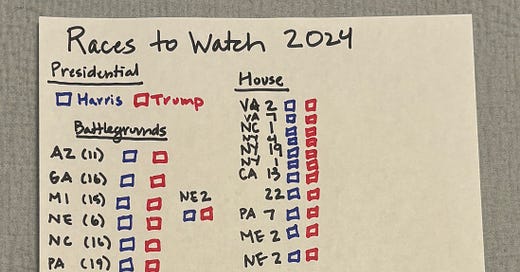 Races to Watch 2024
Presidential
Harris Trump
Battlegrounds
AZ (11)
GA (16)
MI (15)
NE (6)
NC (16)
PA (19)
NE2
House
VA 2
VA 7
NC 1
NY 4
NY 19
NY 1
CA 13
22
PA 7
ME 2
NE 2